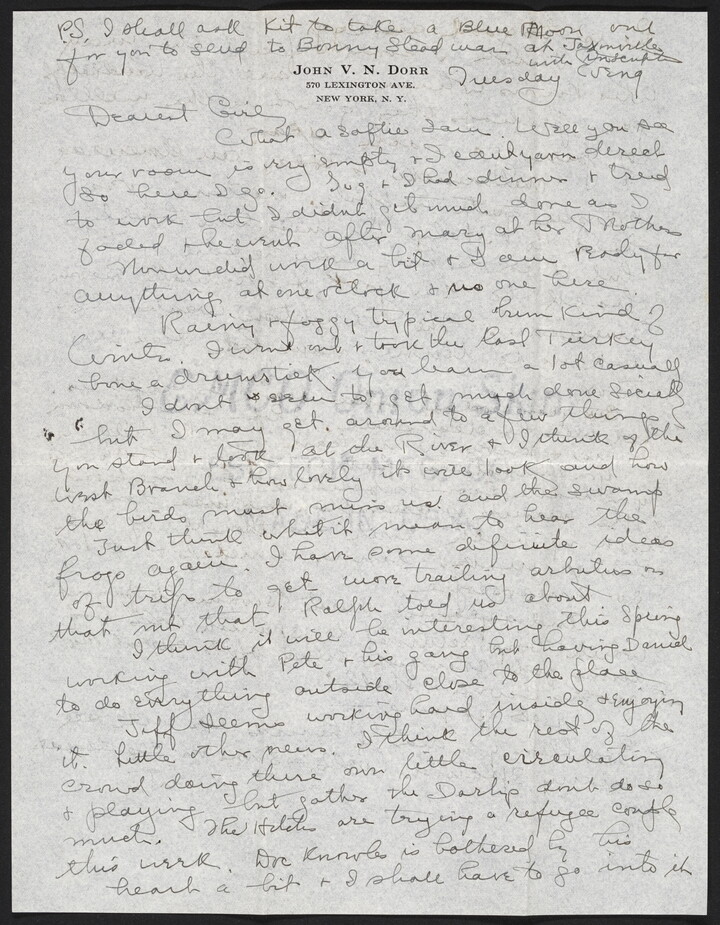 P.S. I shall ask Kit to take a Blue Moon out
for you to send to Bonny Steadman at
with inscription
JOHN V. N. DORR
570 LEXINGTON AVE.
NEW YORK, N. Y.
Tuesday Veng
Dearest Girl
What a softie I am. Well you see
your room is very empty & I can't yarn direct
so here I go. Sug & I had dinner & tried
to work but I didn't get much done as I
faded & he went after Mary at her Mothers
Now we did work a bit & I am ready for
anything at one o'clock & no one here.
Rainy & foggy typical bum kind of
Winter. I went out & took the last Turkey
bone a drumstick. You learn a lot casually
I don't seem to get much done socially
but I may get around to a few things
you stand & look at the River & I think of the
West Branch & how lovely it will look and how
the birds must miss us and the swamp
Just think what it mean to hear the
frogs again. I have some definite ideas
of trips to get more trailing arbutus on
that that Ralph told us about
I think it will be interesting this Spring
working with Pete & his gang but having Daniel
to do everything outside close to the place
Jeff seems working hard inside & enjoying
it. Little other news. I think the rest of the
crowd doing there own little circulating
& playing but gather the don't do so
much. The are trying a refugee couple
this week. Doc Knowles is bothered by his
heart a bit & I shall have to go into it